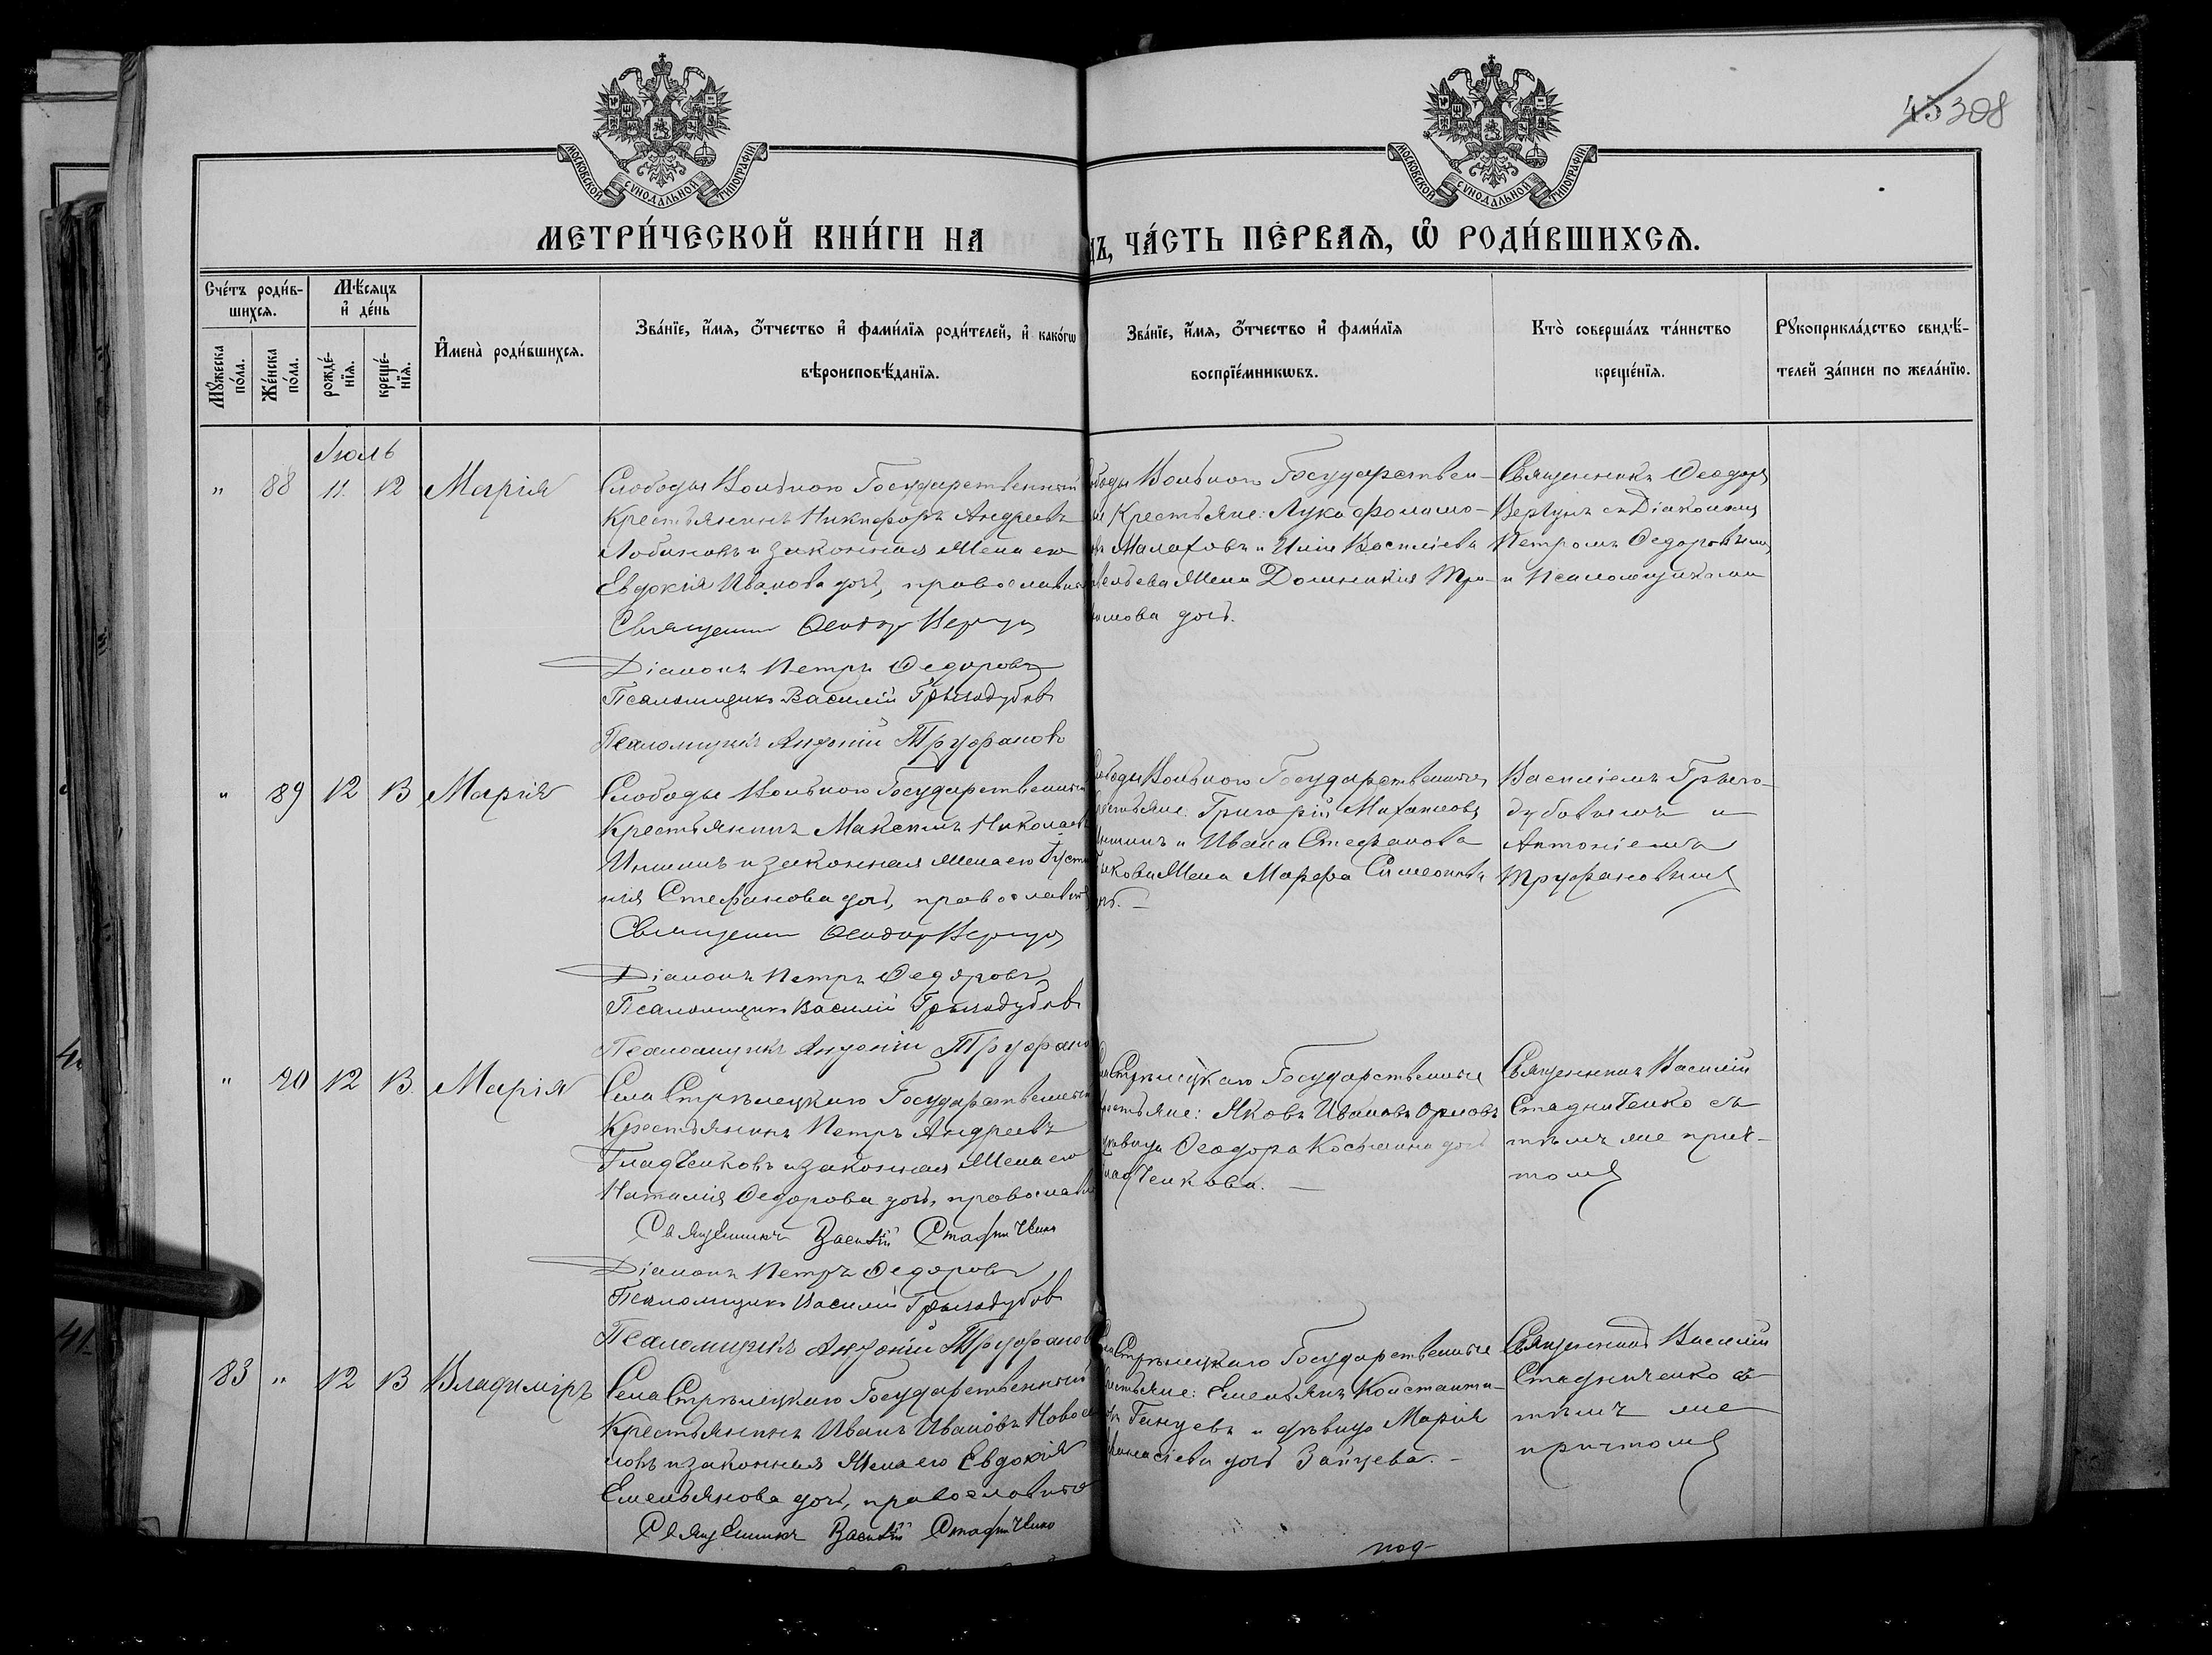 45 308
МОСКОВСКОЙ СѴНОДАЛЬНОЙ ТИПОГРАФІИ
МОСКОВСКОЙ СѴНОДАЛЬНОЙ ТИПОГРАФІИ
МЕТРИ́ЧЕСКОЙ КНИ́ГИ НА
ДЪ, ЧА́СТЬ ПЕ́РВАѦ, Ѡ҆ РОДИ́ВШИХСѦ.
Сче́тъ роди́в-
шихсѧ.
Мꙋ́жеска
по́ла.
Же́нска
по́ла.
Мѣ́сѧцъ
и҆ де́нь
рожде́-
нїѧ.
креще́-
нїѧ.
И҆мена̀ роди́вшихсѧ.
Зва́нїе, и҆́мѧ, ѻ҆́тчество и҆ фами́лїѧ роди́телей, и҆ како́гѡ
вѣроисповѣ́данїѧ.
Зва́нїе, и҆́мѧ, ѻ҆́тчество и҆ фами́лїѧ
воспрїе́мникѡвъ.
Кто̀ соверша́лъ та́инство
креще́нїѧ.
Рꙋкоприкла́дство свидѣ́-
телей за́писи по жела́нїю.
Іюль
" 88 11. 12 Марія
Слободы Вольнаго Государственный
Крестьянинъ Никифоръ Андреевъ
Лобановъ и законная жена его
Евдокія Иванова дочь, православные
Священникъ Ѳеодоръ
Діаконъ Петръ Ѳедоровъ
Псаломщикъ Василій Грызодубовъ
Псаломщикъ Антоній Труфановъ
Вольнаго Государствен-
Крестьяне: Лука
Малаховъ и Василіева
жена Домникія
дочь.
Священникъ Ѳеодоръ
съ Діакономъ
Петромъ Ѳедоровымъ
и Псаломщиками
" 89 12 13 Марія
Слободы Вольнаго Государственный
Крестьянинъ Максимъ Николаевъ
и законная жена его
Стефанова дочь, православные
Священникъ Ѳеодоръ
Діаконъ Петръ Ѳедоровъ
Псаломщикъ Василій Грызодубовъ
Псаломщикъ Антоній
Вольнаго Государственные
Григорій Михаиловъ
и Ивана Стефанова
жена Марфа Симеонова
Василіемъ Грызо-
дубовымъ и
Антоніемъ
Труфановымъ
" 90 12 13. Марія
Села Стрѣлецкаго Государственный
Крестьянинъ Петръ Андреевъ
Гладченковъ и законная жена его
Наталія Ѳедорова дочь, православные
Священникъ Василій Стадниченко
Діаконъ Петръ Ѳедоровъ
Псаломщикъ Василій Грызодубовъ
Псаломщикъ Антоній Труфановъ
Стрѣлецкаго Государственные
Яковъ Ивановъ Орловъ
Ѳеодора Космина дочь
Священникъ Василій
Стадниченко съ
тѣмъ же прич-
томъ
83 " 12 13 Владиміръ
Села Стрѣлецкаго Государственный
Крестьянинъ Иванъ Ивановъ
и законная жена его Евдокія
Емельянова дочь, православные
Священникъ Василій Стадниченко
Стрѣлецкаго Государственные
Емельянъ Константи-
и дѣвица Марія
дочь Зайцева.
Священникъ Василій
Стадниченко съ
тѣмъ же
причтомъ
под-